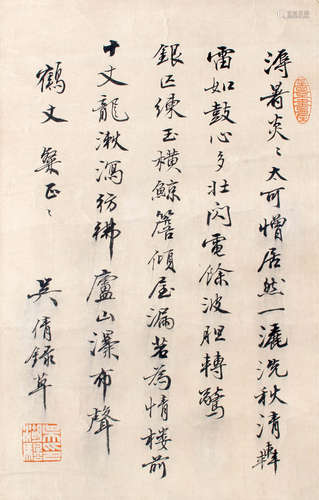 溽暑炎〻太可憎居然一灑洗秋清轟
雷如鼓心多壯閃電餘波胆轉驚
銀匹練玉橫鯨簷傾屋漏若為情樓前
十丈龍湫瀉彷彿廬山瀑布聲
鶴文粲正〻
吳倩錄草